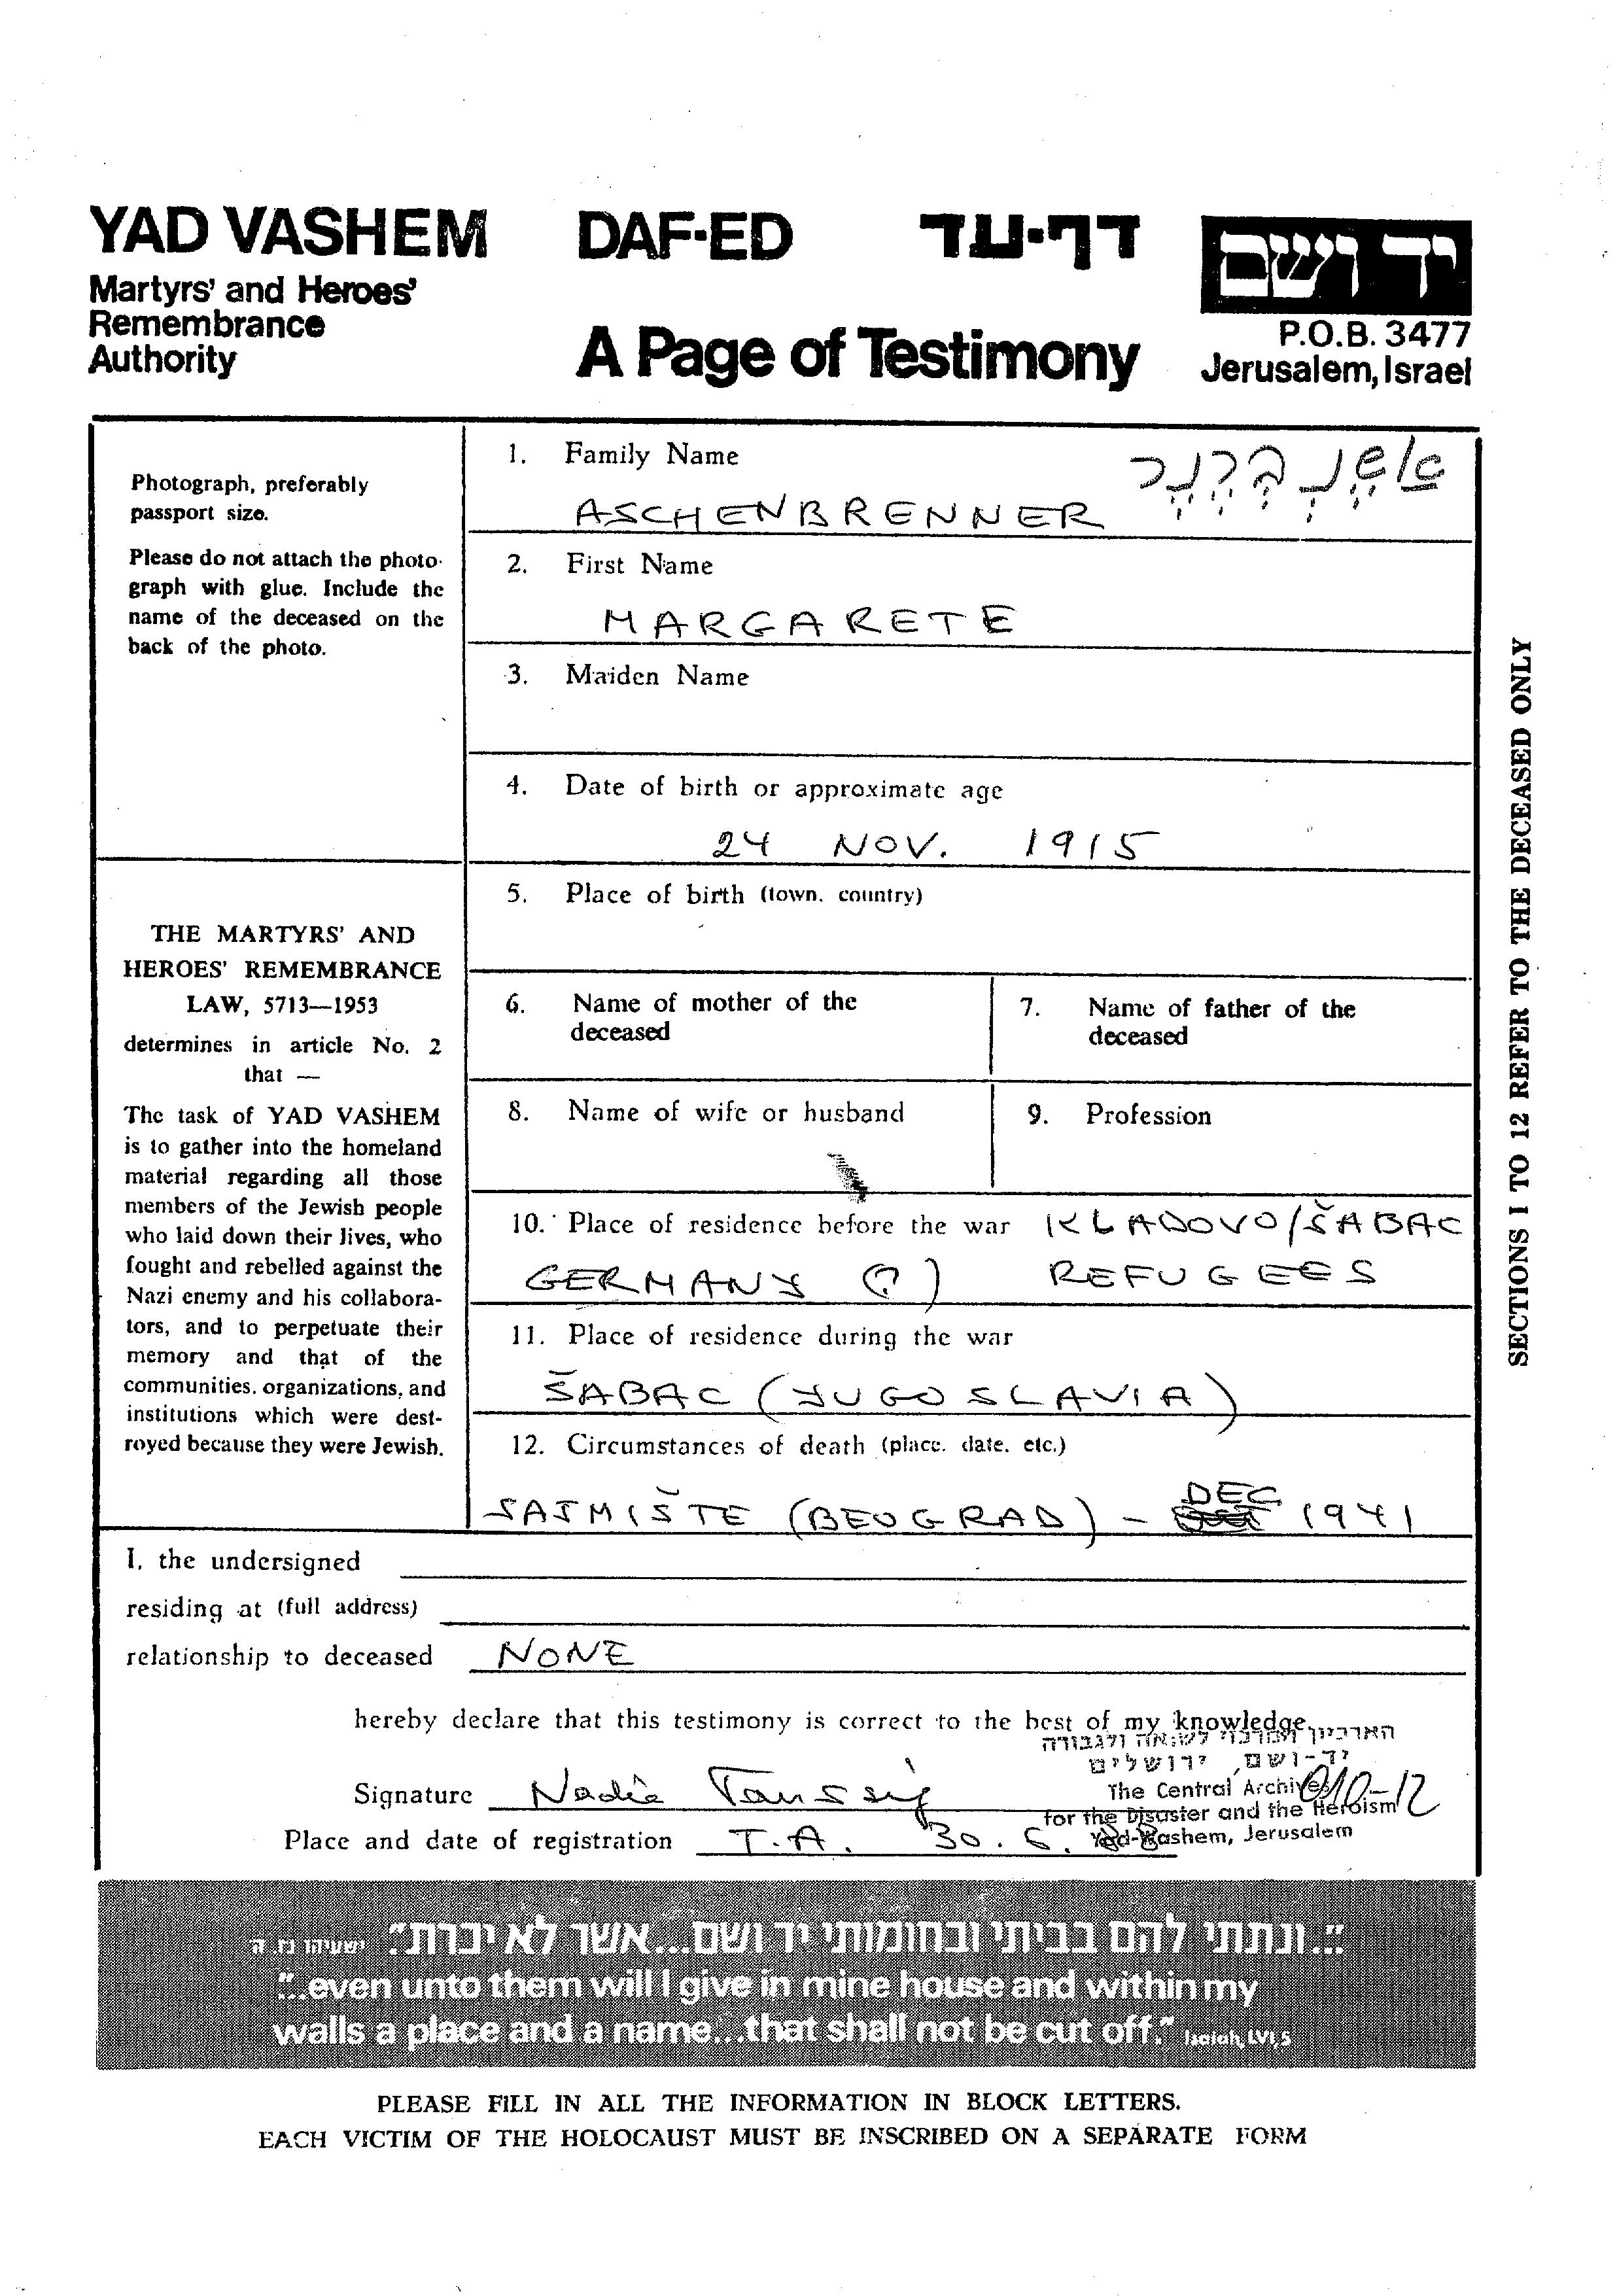 YAD VASHEM DAF-ED דף-עד יד ושם
Martyrs' and Heroes'
Remembrance
Authority
A Page of Testimony
P.O.B. 3477
Jerusalem, Israel
Photograph, preferably
passport size.
Please do not attach the photo-
graph with glue. Include the
name of the deceased on the
back of the photo.
THE MARTYRS' AND
HEROES' REMEMBRANCE
LAW, 5713—1953
determines in article No. 2
that —
The task of YAD VASHEM
is to gather into the homeland
material regarding all those
members of the Jewish people
who laid down their lives, who
fought and rebelled against the
Nazi enemy and his collabora-
tors, and to perpetuate their
memory and that of the
communities, organizations, and
institutions which were dest-
royed because they were Jewish.
1. Family Name
אַשֶׁנְבְּרֶנֶר
ASCHENBRENNER
2. First Name
MARGARETE
3. Maiden Name
4. Date of birth or approximate age
24 NOV. 1915
5. Place of birth (town, country)
6. Name of mother of the
deceased
7. Name of father of the
deceased
8. Name of wife or husband
9. Profession
10. Place of residence before the war KLADOVO/ŠABAC
GERMANY (?) REFUGEES
11. Place of residence during the war
ŠABAC (YUGOSLAVIA)
12. Circumstances of death (place, date, etc.)
DEC
SAJMIŠTE (BEOGRAD) - 1941
SECTIONS 1 TO 12 REFER TO THE DECEASED ONLY
I, the undersigned
residing at (full address)
relationship to deceased NONE
hereby declare that this testimony is correct to the best of my knowledge.
הארכיון המרכזי לשואה ולגבורה
יד-ושם, ירושלים
The Central Archives
for the Disaster and the Heroism
Yad-Washem, Jerusalem
Signature
Place and date of registration T.A. 30.6.
"...ונתתי להם בביתי ובחומותי יד ושם...אשר לא יכרת." ישעיהו נו, ה
"...even unto them will I give in mine house and within my
walls a place and a name...that shall not be cut off." Isaiah, LVI, 5
PLEASE FILL IN ALL THE INFORMATION IN BLOCK LETTERS.
EACH VICTIM OF THE HOLOCAUST MUST BE INSCRIBED ON A SEPARATE FORM